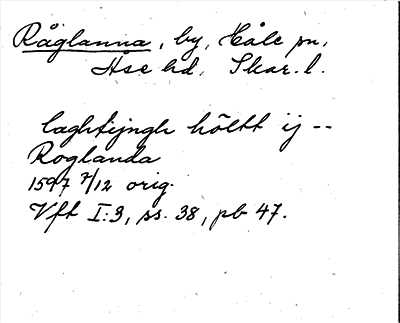 Råglanna, by, Håle sn,
Åse hd, Skar. l.
laghtijngh höltt ij --
Roglanda
1597 7/12 orig.
Vft I:3, ss. 38, pb 47.